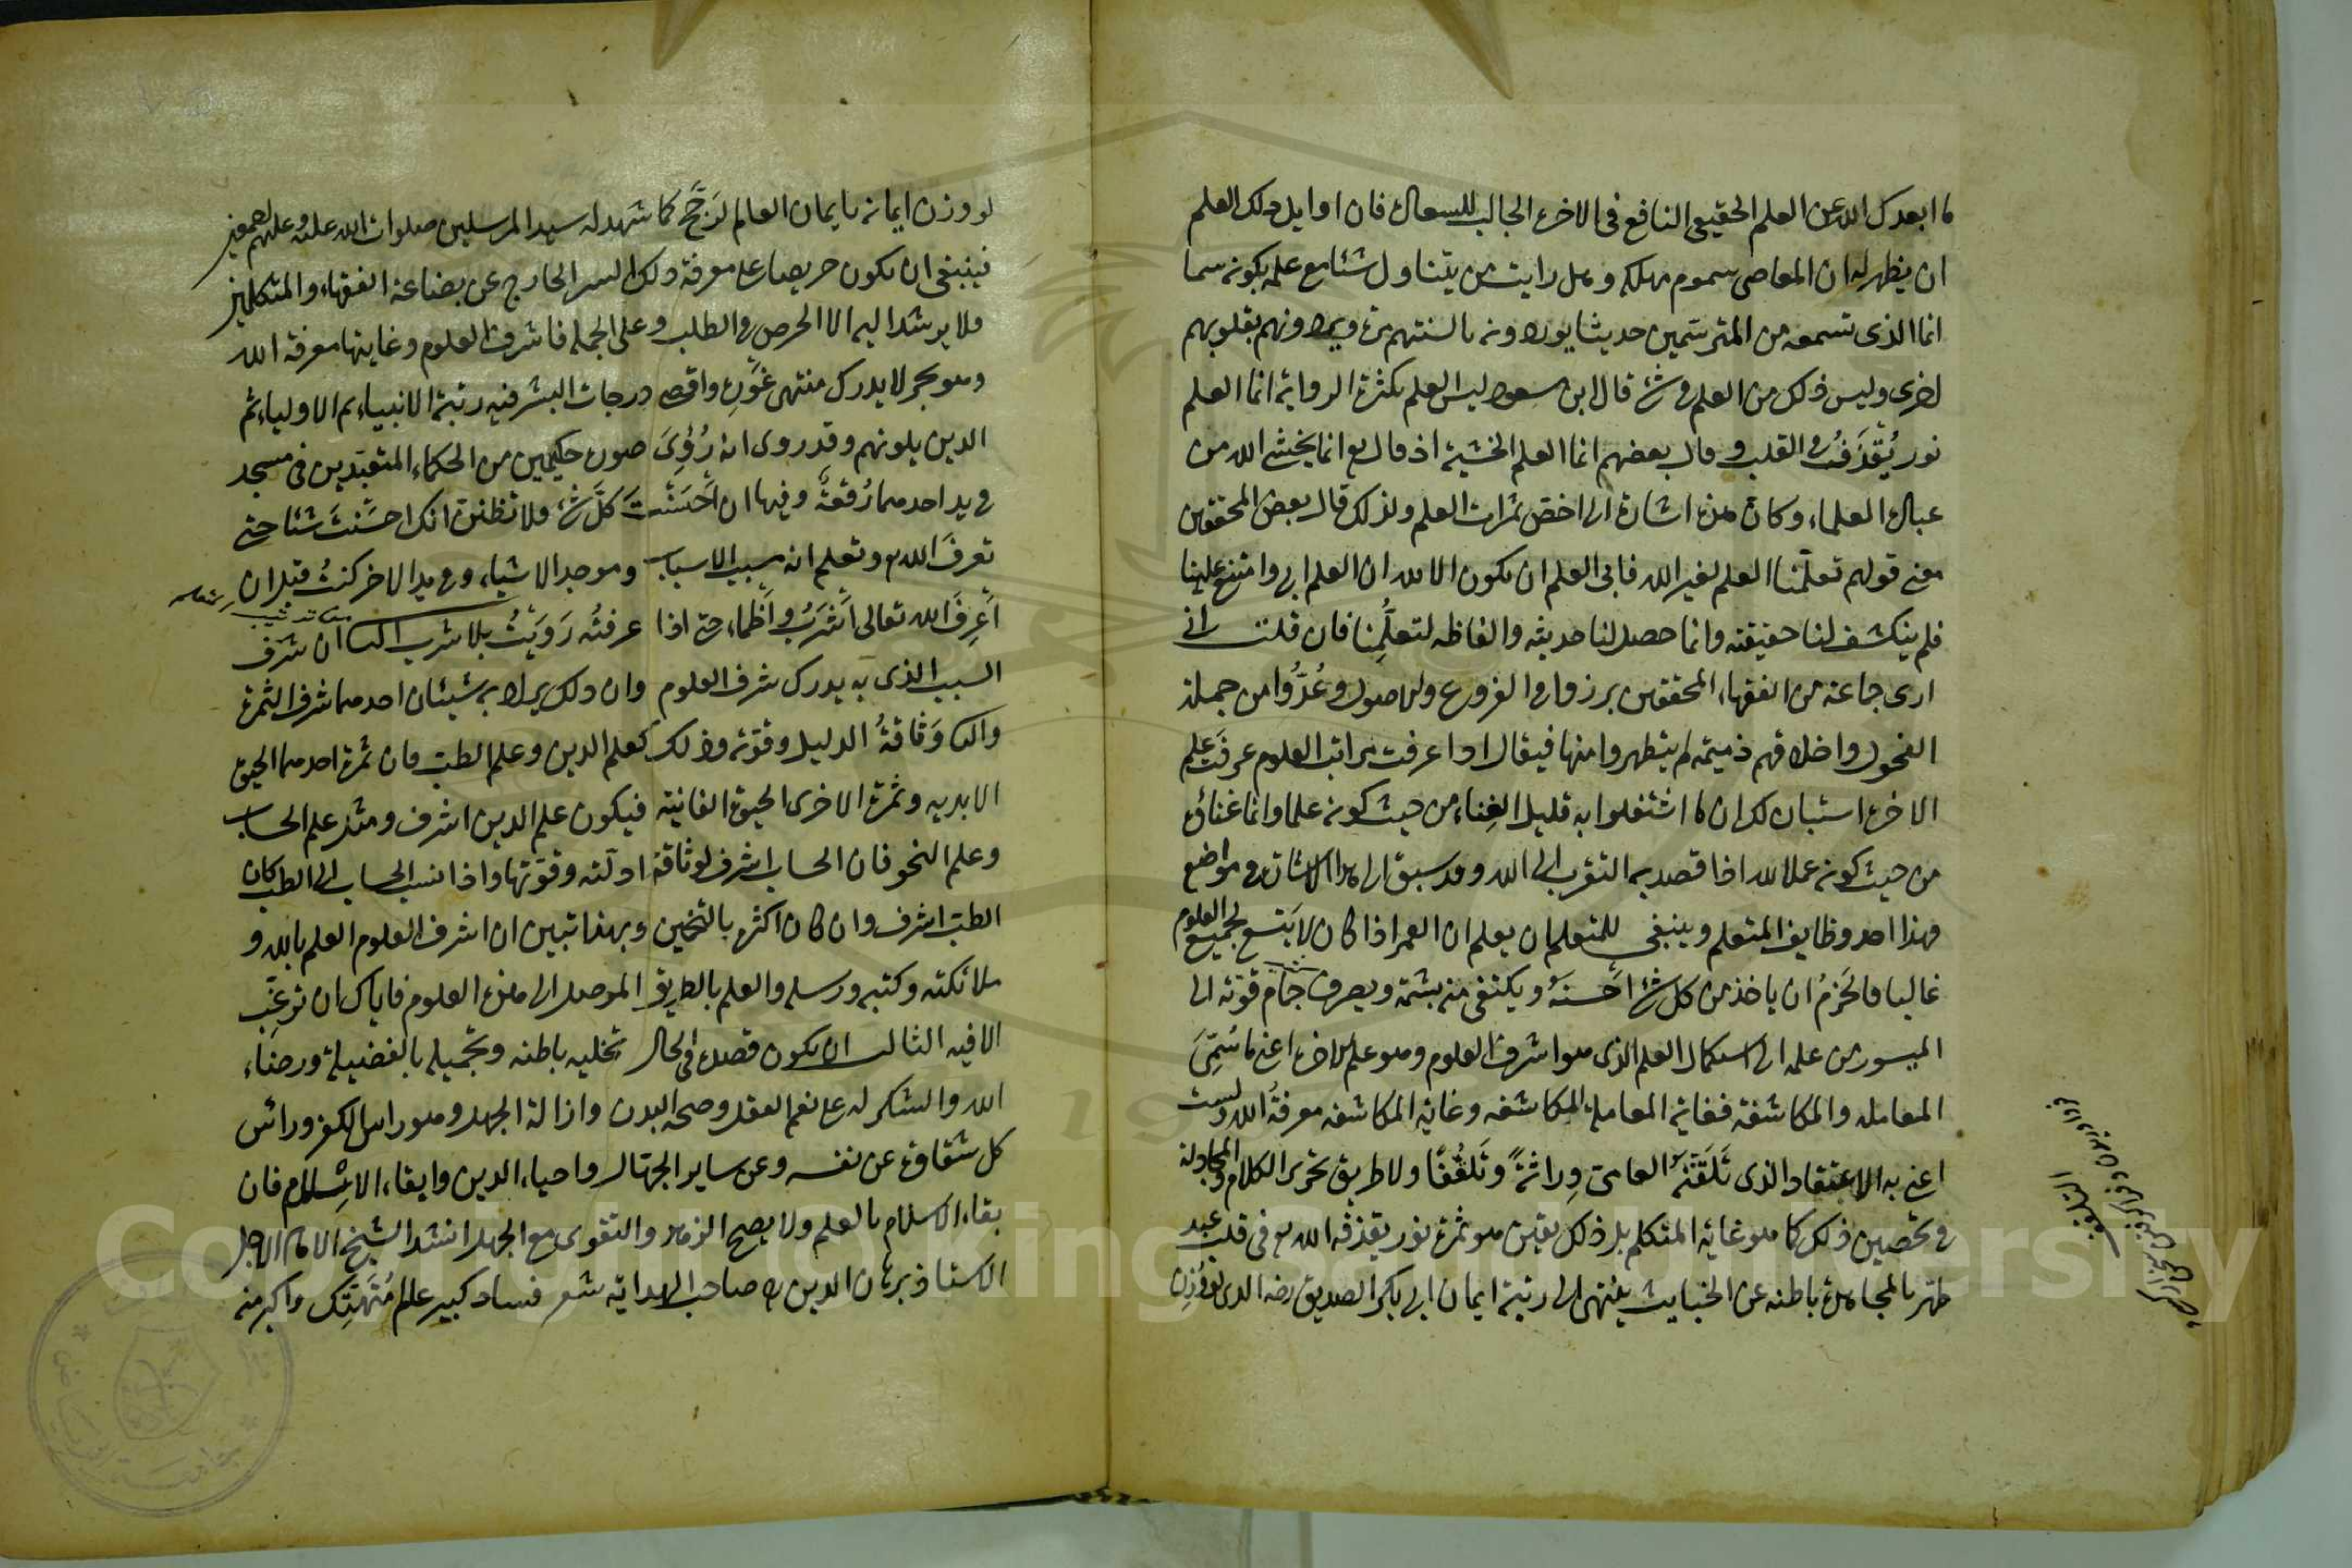 ما ابعدك الله عن العلم الحقيقي النافع في الاخرة الجالب للسعادة فان اوايل ذلك العلم
ان يظهر له ان المعاصي سموم مهلكة وهل رايت من يتناول شئا مع علمه بكونه سما
انما الذى تسمعه من المترسمين حديثا يوردونه بالسنتهم مرة ويردونهم بقلوبهم
اخرى وليس ذلك من العلم في شئ قال ابن مسعود ليس العلم بكثرة الرواية انما العلم
نور يُقذَفُ في القلب وقال بعضهم انما العلم الخشية اذ قال تع انما يخشى الله من
عباده العلماء وكان هذه اشارة الى اخص ثمرات العلم ولذلك قال بعض المحققين
معنى قولهم تعلّمنا العلم لغير الله فابى العلم ان يكون الا لله ان العلم ابى وامتنع علينا
فلم ينكشف لنا حقيقته وانما حصل لنا حديثه والفاظه لتعلُّمِنا فان قلت اني
ارى جماعة من الفقهاء المحققين برزوا في الفروع والاصول وعُدُّوا من جملة
الفحول واخلاقهم ذميمة لم يتطهروا منها فيقال اذا عرفت مراتب العلوم عرفت علم
الاخرة استبان لك ان ما اشتغلوا به قليل الغِناء من حيث كونه علما وانما غناؤه
من حيث كونه عملا لله اذا قصد به التقرب الى الله وقد سبق الى هذا اشارة في مواضع
فهذا احد وظايف المتعلم وينبغي للمتعلم ان يعلم ان العمر اذا كان لا يتسع لجميع العلوم
غالبا فالحَزمُ ان ياخذ من كل شئ احسنَهُ ويكتفي منه بشمة ويصرف جمام قوته الى
الميسور من علمه الى استكمال العلم الذى هو اشرف العلوم وهو علم الاخرة اعنى ما سُمِّىَ
المعاملة والمكاشفة فغاية المعاملة المكاشفة وغاية المكاشفة معرفةُ الله ولست
اعنى به الاعتقاد الذى تَلَقَّنَهُ العامى وِراثةً وتَلَقُّفًا ولا طريق تحرير الكلام والمجادلة
في تحصين ذلك كما هو غاية المتكلم بل ذلك يقين هو ثمرة نور يقذفه الله تع في قلب عبد
طهر بالمجاهدة باطنه عن الخبايث ينتهى الى رتبة ايمان ابى بكر الصديق رضه الذى
لو وزن ايمانه بايمان العالم لرَجَّح كما شهد له سيد المرسلين صلوات الله عليه وعليهم اجمعين
فينبغى ان يكون حريصا على معرفة ذلك السر الخارج عن بضاعة الفقهاء والمتكلمين
فلا يرشد اليه الا الحرص في الطلب وعلى الجملة فاشرف العلوم وغايتها معرفة الله
وهو بحر لا يدرك منتهى غَورِه واقصى درجات البشر فيه رتبة الانبياء ثم الاولياء ثم
الذين يلونهم وقد روى انه رُؤىَ صورة حكيمين من الحكماء المتعبّدين في مسجد
في يد احدهما رُقعَةٌ وفيها ان اَحسَنتَ كلَّ شئ فلا تظنن انك احسَنتَ شئا حتى
تعرفَ الله تع وتعلم انه مسبب الاسباب وموجد الاشياء وفي يد الاخر كنتُ قبل ان
اَعرِفَ الله تعالى اَشرَبُ واَظمَاء حتى اذا عرفته رَوَيتُ بلا شرب ان شرف
السبب الذى به يدرك شرف العلوم وان ذلك يراد به شيئان احدهما شرف الثمرة
والثانى وَثاقةُ الدليل وقوّته وذلك كعلم الدين وعلم الطب فان ثمرة احدهما الحيوة
الابدية وثمرة الاخرى الحيوة الفانية فيكون علم الدين اشرف ومثل علم الحساب
وعلم النحو فان الحساب اشرف لوثاقة ادلته وقوّتها واذا انسب الحساب الى الطب كان
الطب اشرف وان كان اكثره بالتخمين وبهذا تبين ان اشرف العلوم العلم بالله و
ملائكته وكتبه ورسله والعلم بالطريق الموصل الى هذه العلوم فاياك ان ترغب
الا فيه الثالث ان يكون قصده في الحال تحلية باطنه وتجميله بالفضيلة ورضاء
الله والشكر له على نعم العقل وصحة البدن وازالة الجهل وهو راس الكفر وراس
كل شقاوة عن نفسه وعن ساير الجهال واحياء الدين وابقاء الاسلام فان
بقاء الاسلام بالعلم ولا يصح الزهد والتقوى مع الجهل انشد الشيخ الامام الاجل
الاستاذ برهان الدين ره صاحب الهداية شعر فساد كبير عالم مُتَهَتِّك واكبر منه
Copyright © King Saud University